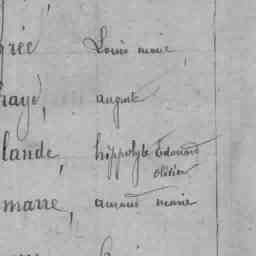 rée Louis marie
hayé, auguste
lande, hippolyte Edouard
olivier
marre, amand marie